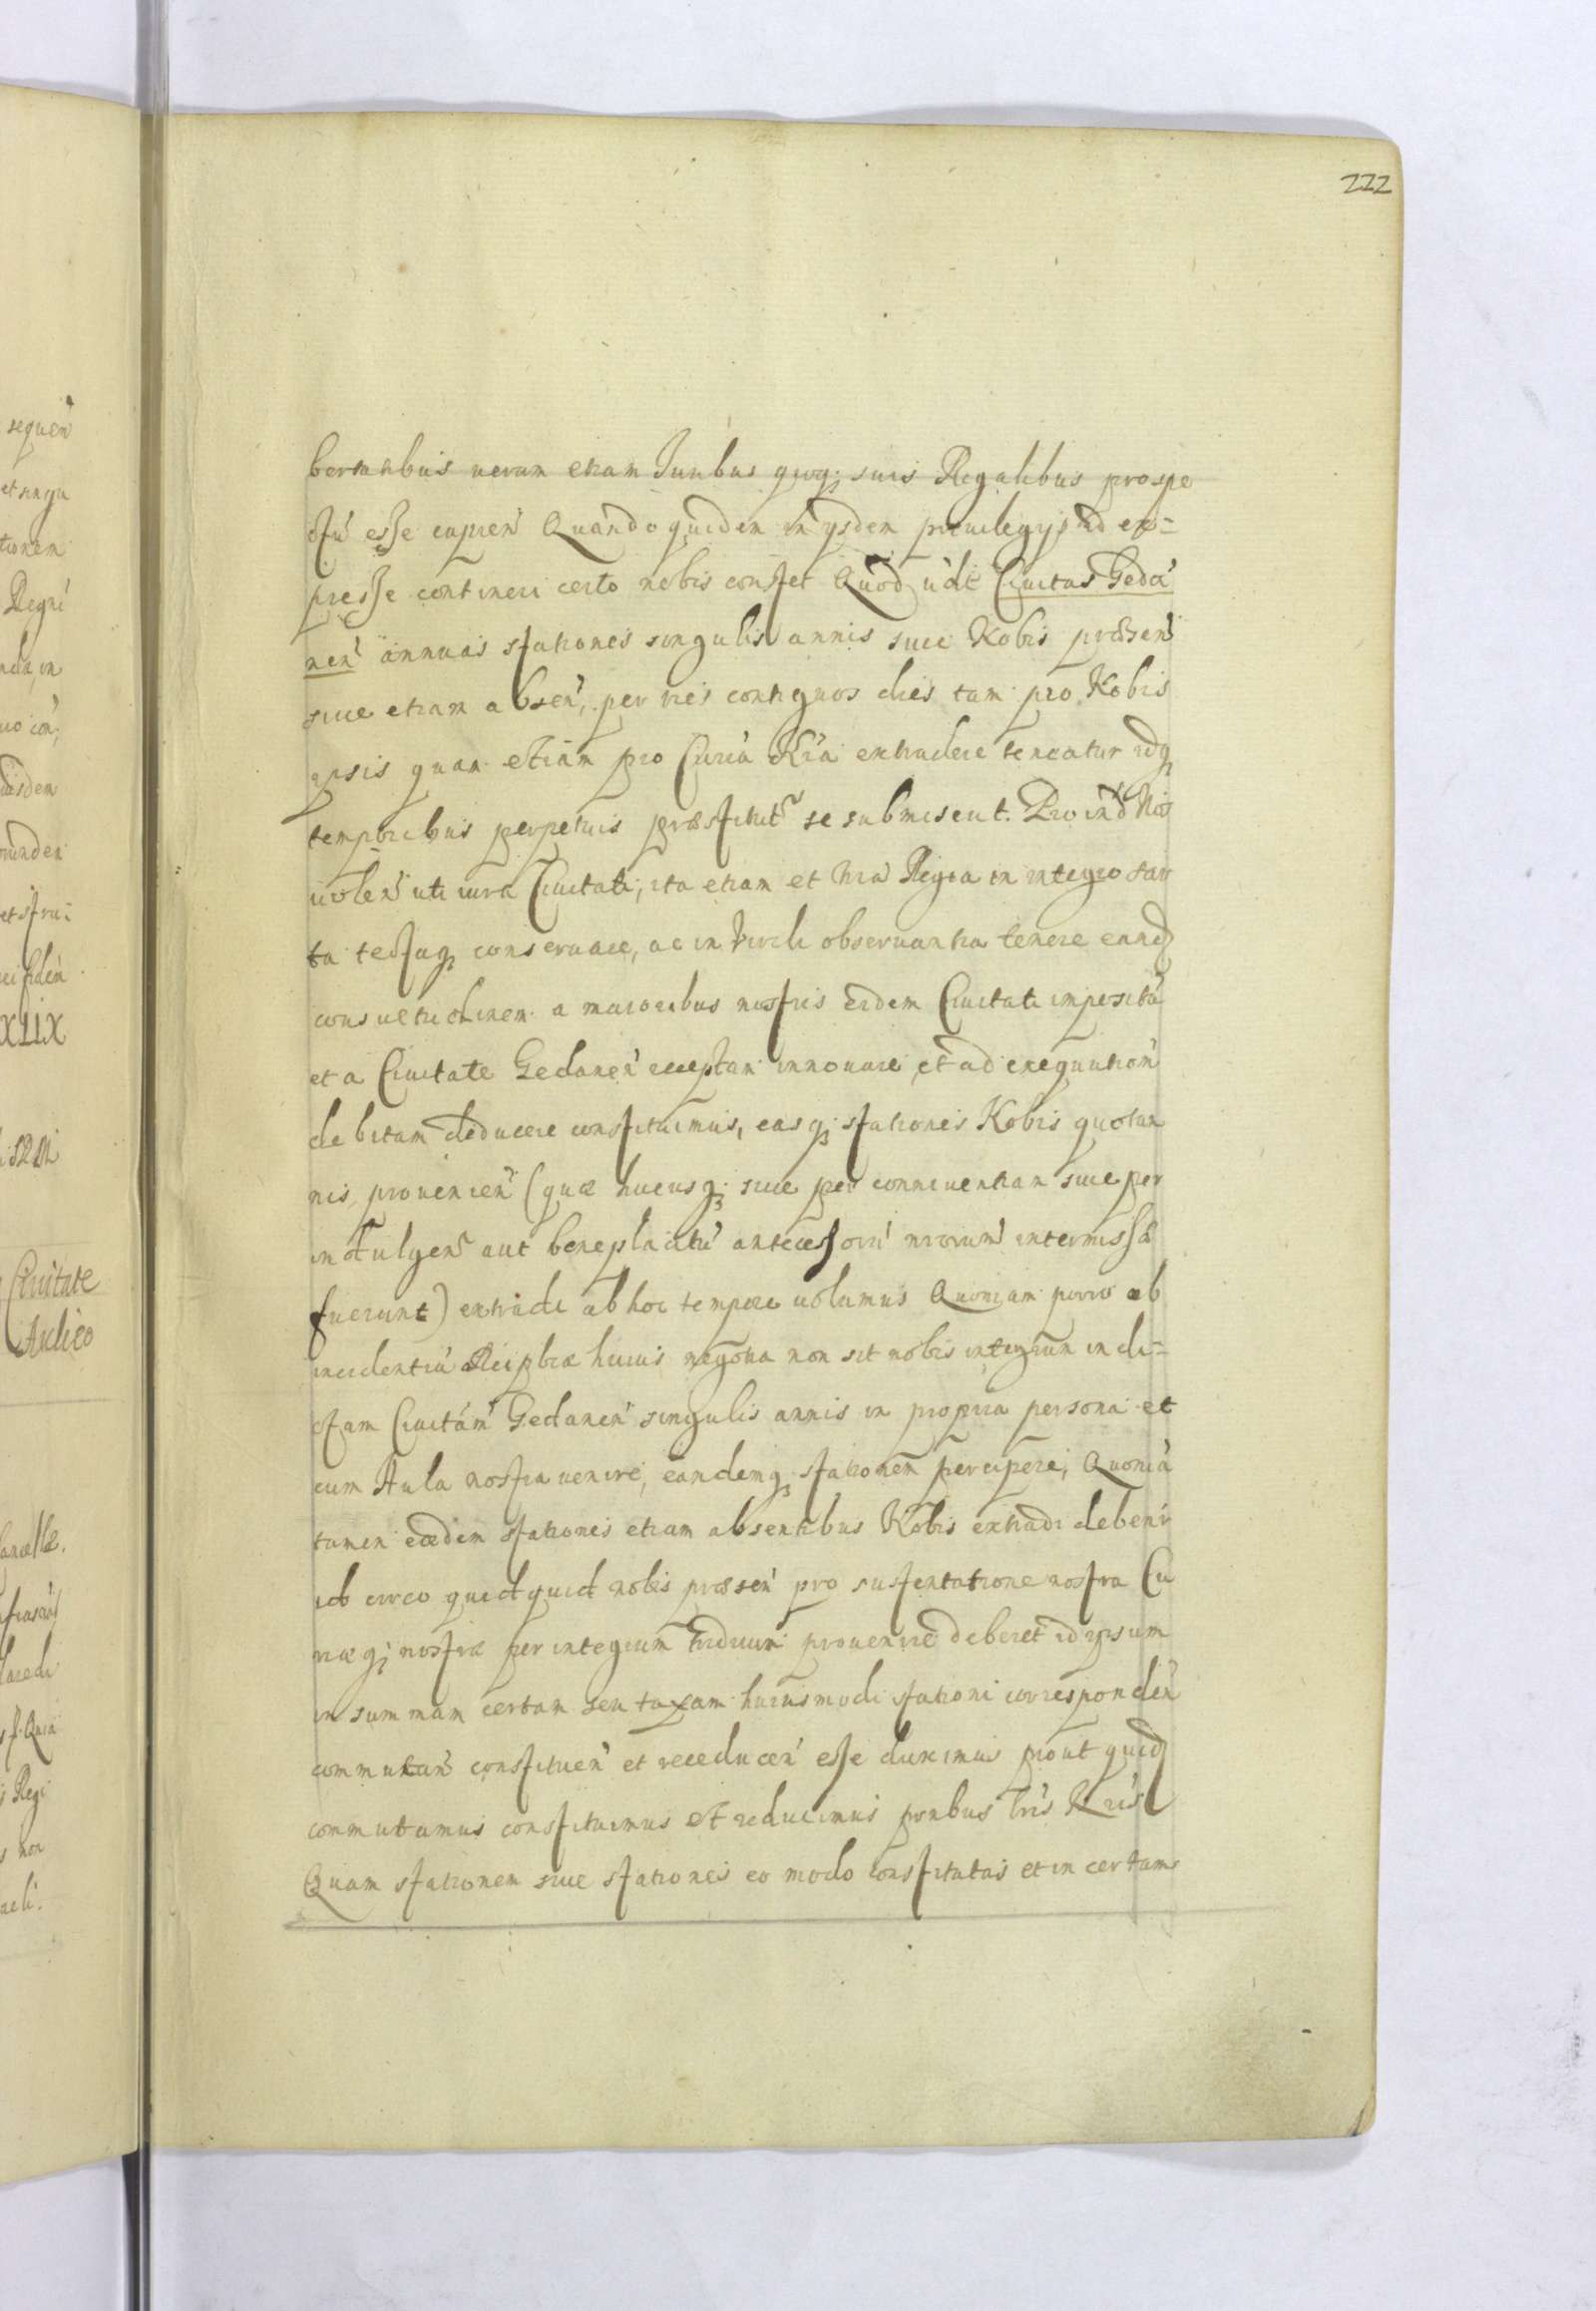 222
bertatibus uerum etiam Iuribus quoq; suis Regalibus prospe
ctu esse cupien̄ Quandoquidem in ysdem priuilegijs id ex=
presse contineri certo nobis constet Quod Ciuitas Gedā
nen̄ annuas stationes singulis annis siue Nobis præsen̄
siue etiam absen̄, per tres contiguos dies tam pro Nobis
ipsis quam etiam pro Curia Nr̄a extradere teneatur idq;
temporibus perpetuis præstitur̄ se submiserit. Proind Nos
uolen̄ uti iura Ciuitati, ita etiam et nr̄a Regia in integro sar
ta tectaq; conseruare, ac in viridi obseruantia tenere eand
consuetudinem a maioribus nostris eidem Ciuitati impositā
et a Ciuitate Gedanen̄ receptam innouare et ad exequution̄
debitam deducere constituimus, easq; stationes Nobis quotan
nis prouenien̄ (quæ hucusq; siue per conniuentiam siue per
indulgen̄ aut beneplacitū antecessorū nrorum intermissæ
fuerunt) extradi ab hoc tempore uolumus Quoniam porro ob
incidentiā Reipbcæ huius negotia non sit nobis integrum in di=
ctam Ciuitām Gedanen̄ singulis annis in propria persona et
cum Aula nostra uenire, eandemq; stationem percipere, Quoniā
tamen eædem stationes etiam absentibus Nobis extradi debent̄
id circo quidquid nobis præsen̄ pro sustentatione nostra Cu
riæq; nostræ per integrum triduum prouenire deberet id ipsum
in summam certam seu taxam huiusmodi stationi corresponden̄
commutan̄ constituen̄ et reducen̄ esse duximus prout quid
commutamus constituimus et reducimus pntibus lrīs Nrīs
Quam stationem siue stationes eo modo constitutas et in certam
sequen̄
et singu
tionem
Regni
XLIX
Ciuitate
Regi
non